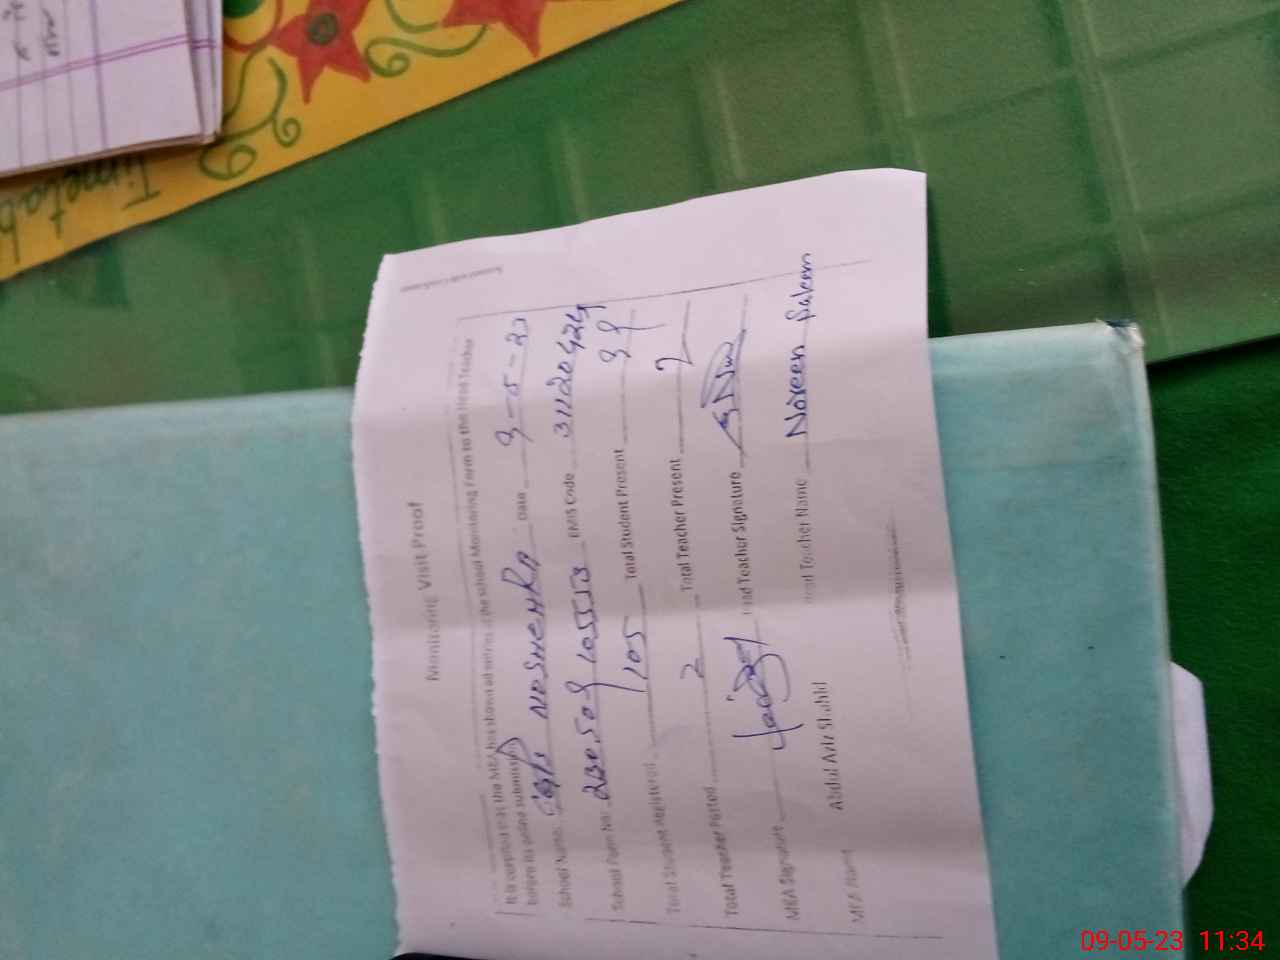 Timetab
Monitoring Visit Proof
It is certified that the MEA has shown all entries of the school Monitoring Form to the Head Teacher
before its online submission
School Name: GGPS NOSHEHRA Date 9-5-23
School Form No: 230509105553 EMIS Code 31120424
Total Student Registered 105 Total Student Present 99
Total Teacher Posted 2 Total Teacher Present 2
MEA Signature Head Teacher Signature
MEA Name Abdul Aziz Shahid Head Teacher Name Noreen Saleem
09-05-23 11:34